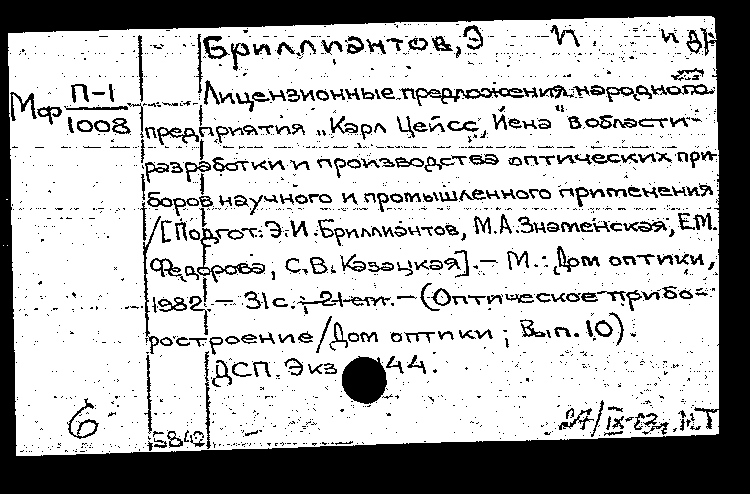 Бриллиантов, Э И. и др.
Мф П-1
1008
Лицензионные предложения народного
предприятия „Карл Цейсс, Йена" в области
разработки и производства оптических при
боров научного и промышленного применения
/[Подгот.: Э.И.Бриллиантов, М.А.Знаменская, Е.М.
Федорова, С.В.Казацкая]. – М.: Дом оптики,
1982. – 31 с.; 21 см. – (Оптическое прибо-
ростроение/Дом оптики; Вып. 10).
ДСП. Экз 44.
6
5842
27/IX-83г. МТ